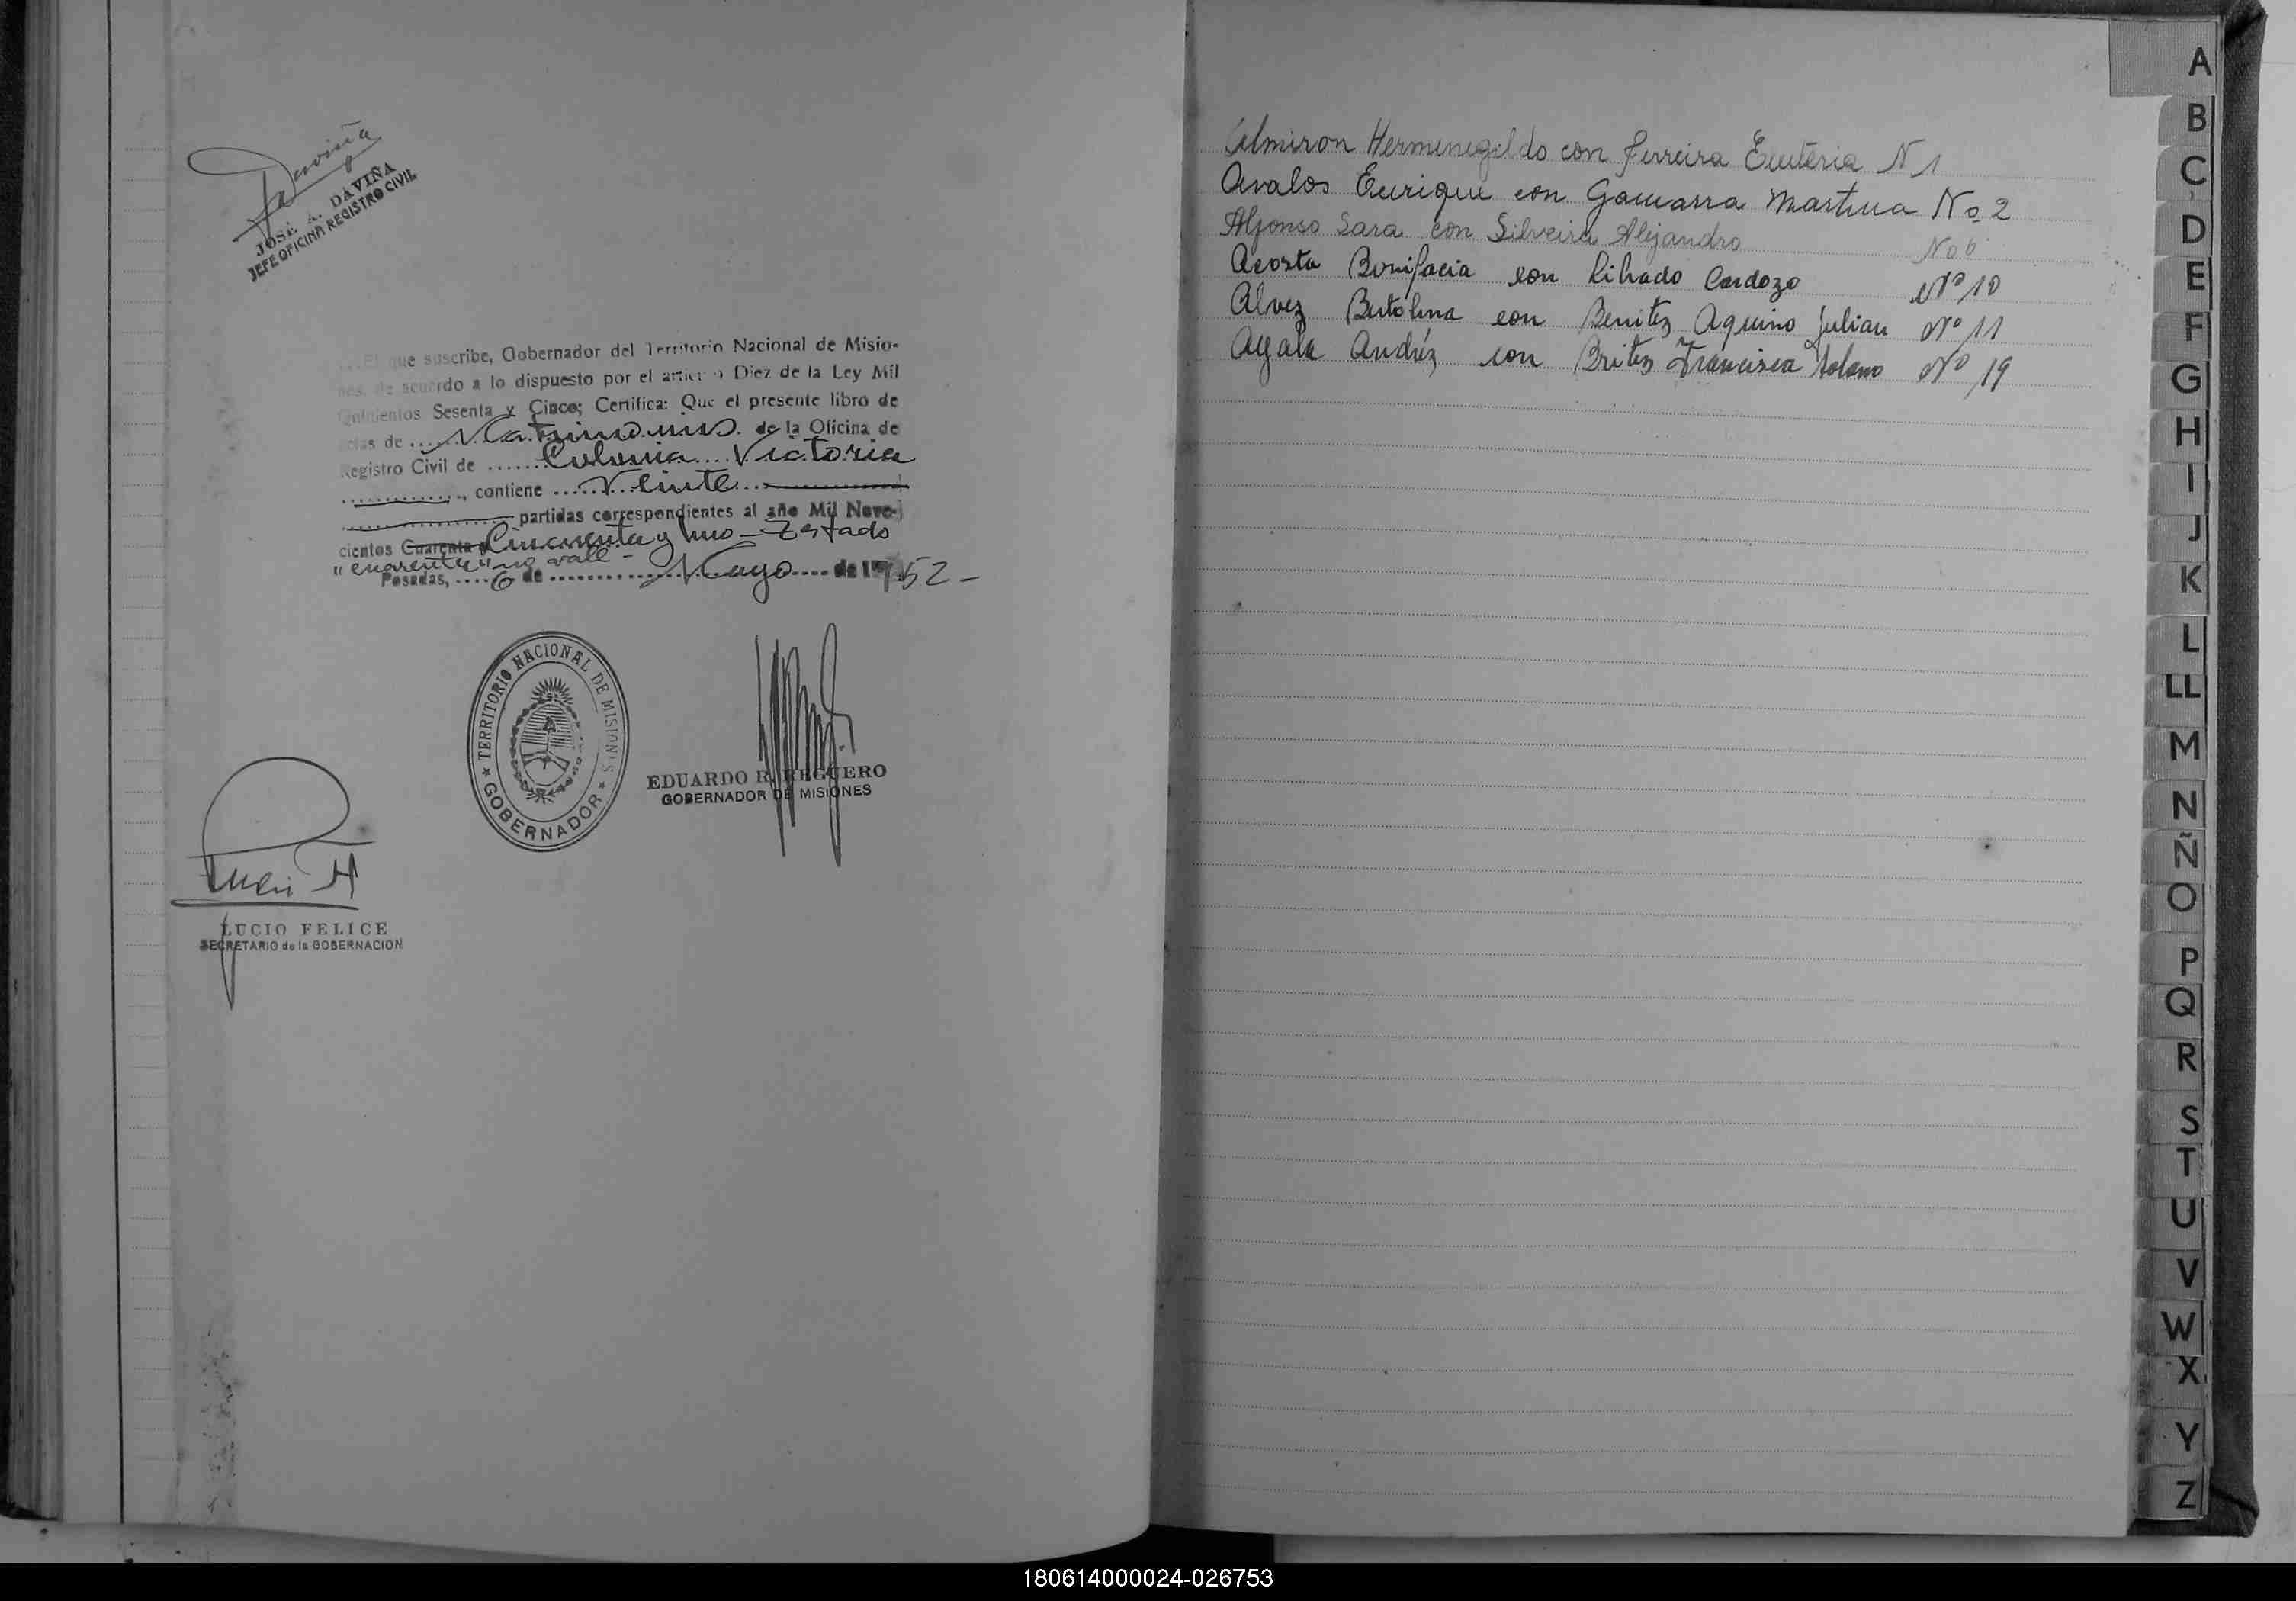 Daviña
JOSÉ A. DAVIÑA
JEFE OFICINA REGISTRO CIVIL
El que suscribe, Gobernador del Territorio Nacional de Misio-
nes, de acuerdo a lo dispuesto por el artículo Diez de la Ley Mil
Quinientos Sesenta y Cinco; Certifica: Que el presente libro de
actas de .... Matrimonios de la Oficina de
Registro Civil de ...... Colonia Victoria
, contiene ..... Veinte
partidas correspondientes al año Mil Nove-
cientos Cuarenta y Cincuenta y uno - Testado
"cuarenta" no vale -
Posadas, .... 6 de ........ Mayo .... de 1952 -
TERRITORIO NACIONAL DE MISIONES
GOBERNADOR
EDUARDO R. REGUERO
GOBERNADOR DE MISIONES
LUCIO FELICE
SECRETARIO de la GOBERNACION
Almiron Hermenegildo con Ferreira Eleuteria N 1
Avalos Enrique con Gamarra Martina No 2
Alfonso Sara con Silveira Alejandro No 6
Acosta Bonifacia con Librado Cardozo Nº 10
Alvez Bertolina con Benitez Aquino Julian Nº 11
Ayala Andréz con Britez Francisca Solano Nº 19
A
B
C
D
E
F
G
H
I
J
K
L
LL
M
N
Ñ
O
P
Q
R
S
T
U
V
W
X
Y
Z
180614000024-026753